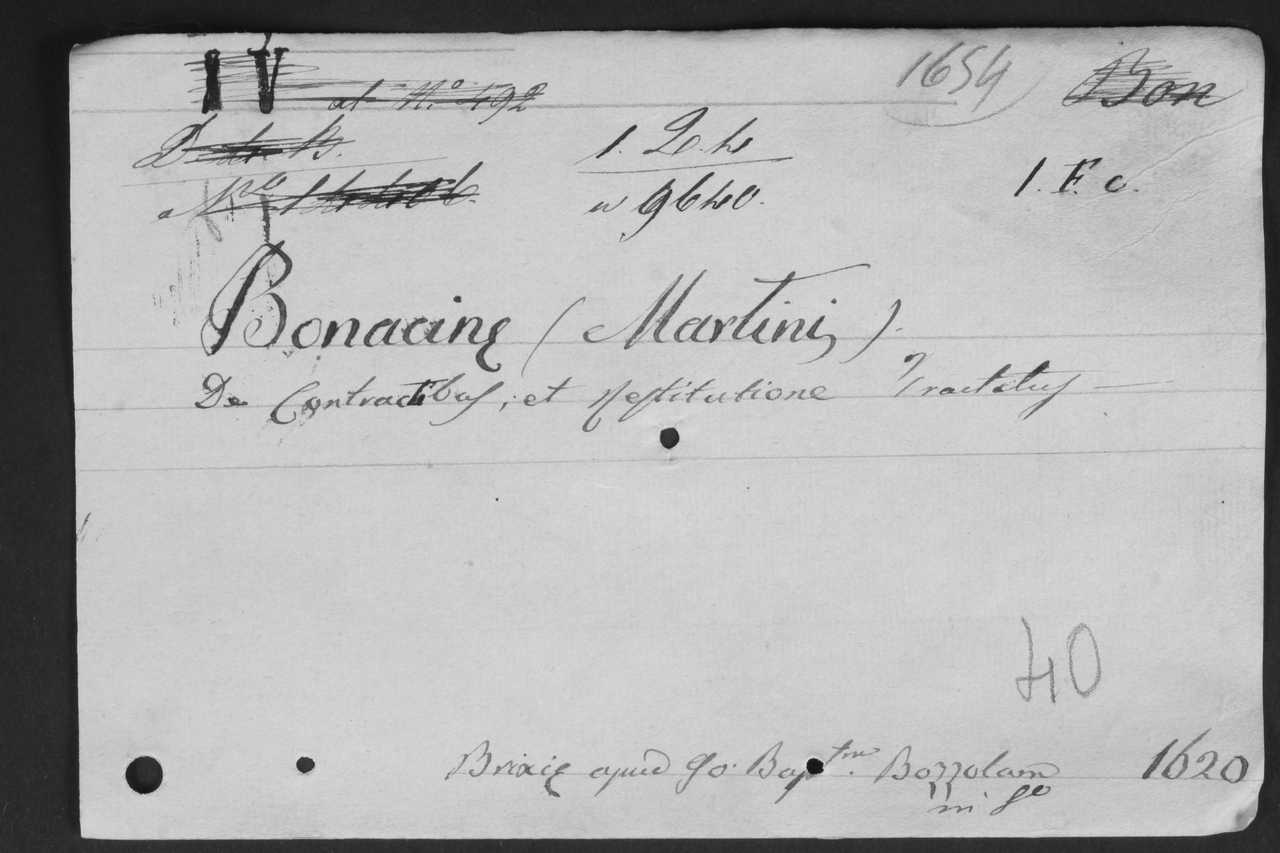 IV at N.o 192 1654 Bon
1. 2.4
n 9640. 1. F. c.
Bonacinę (Martini).
De Contractibus, et Restitutione Tractatus
40
Brixię apud Jo. Bap.tm Bozzolam 1620
in fo